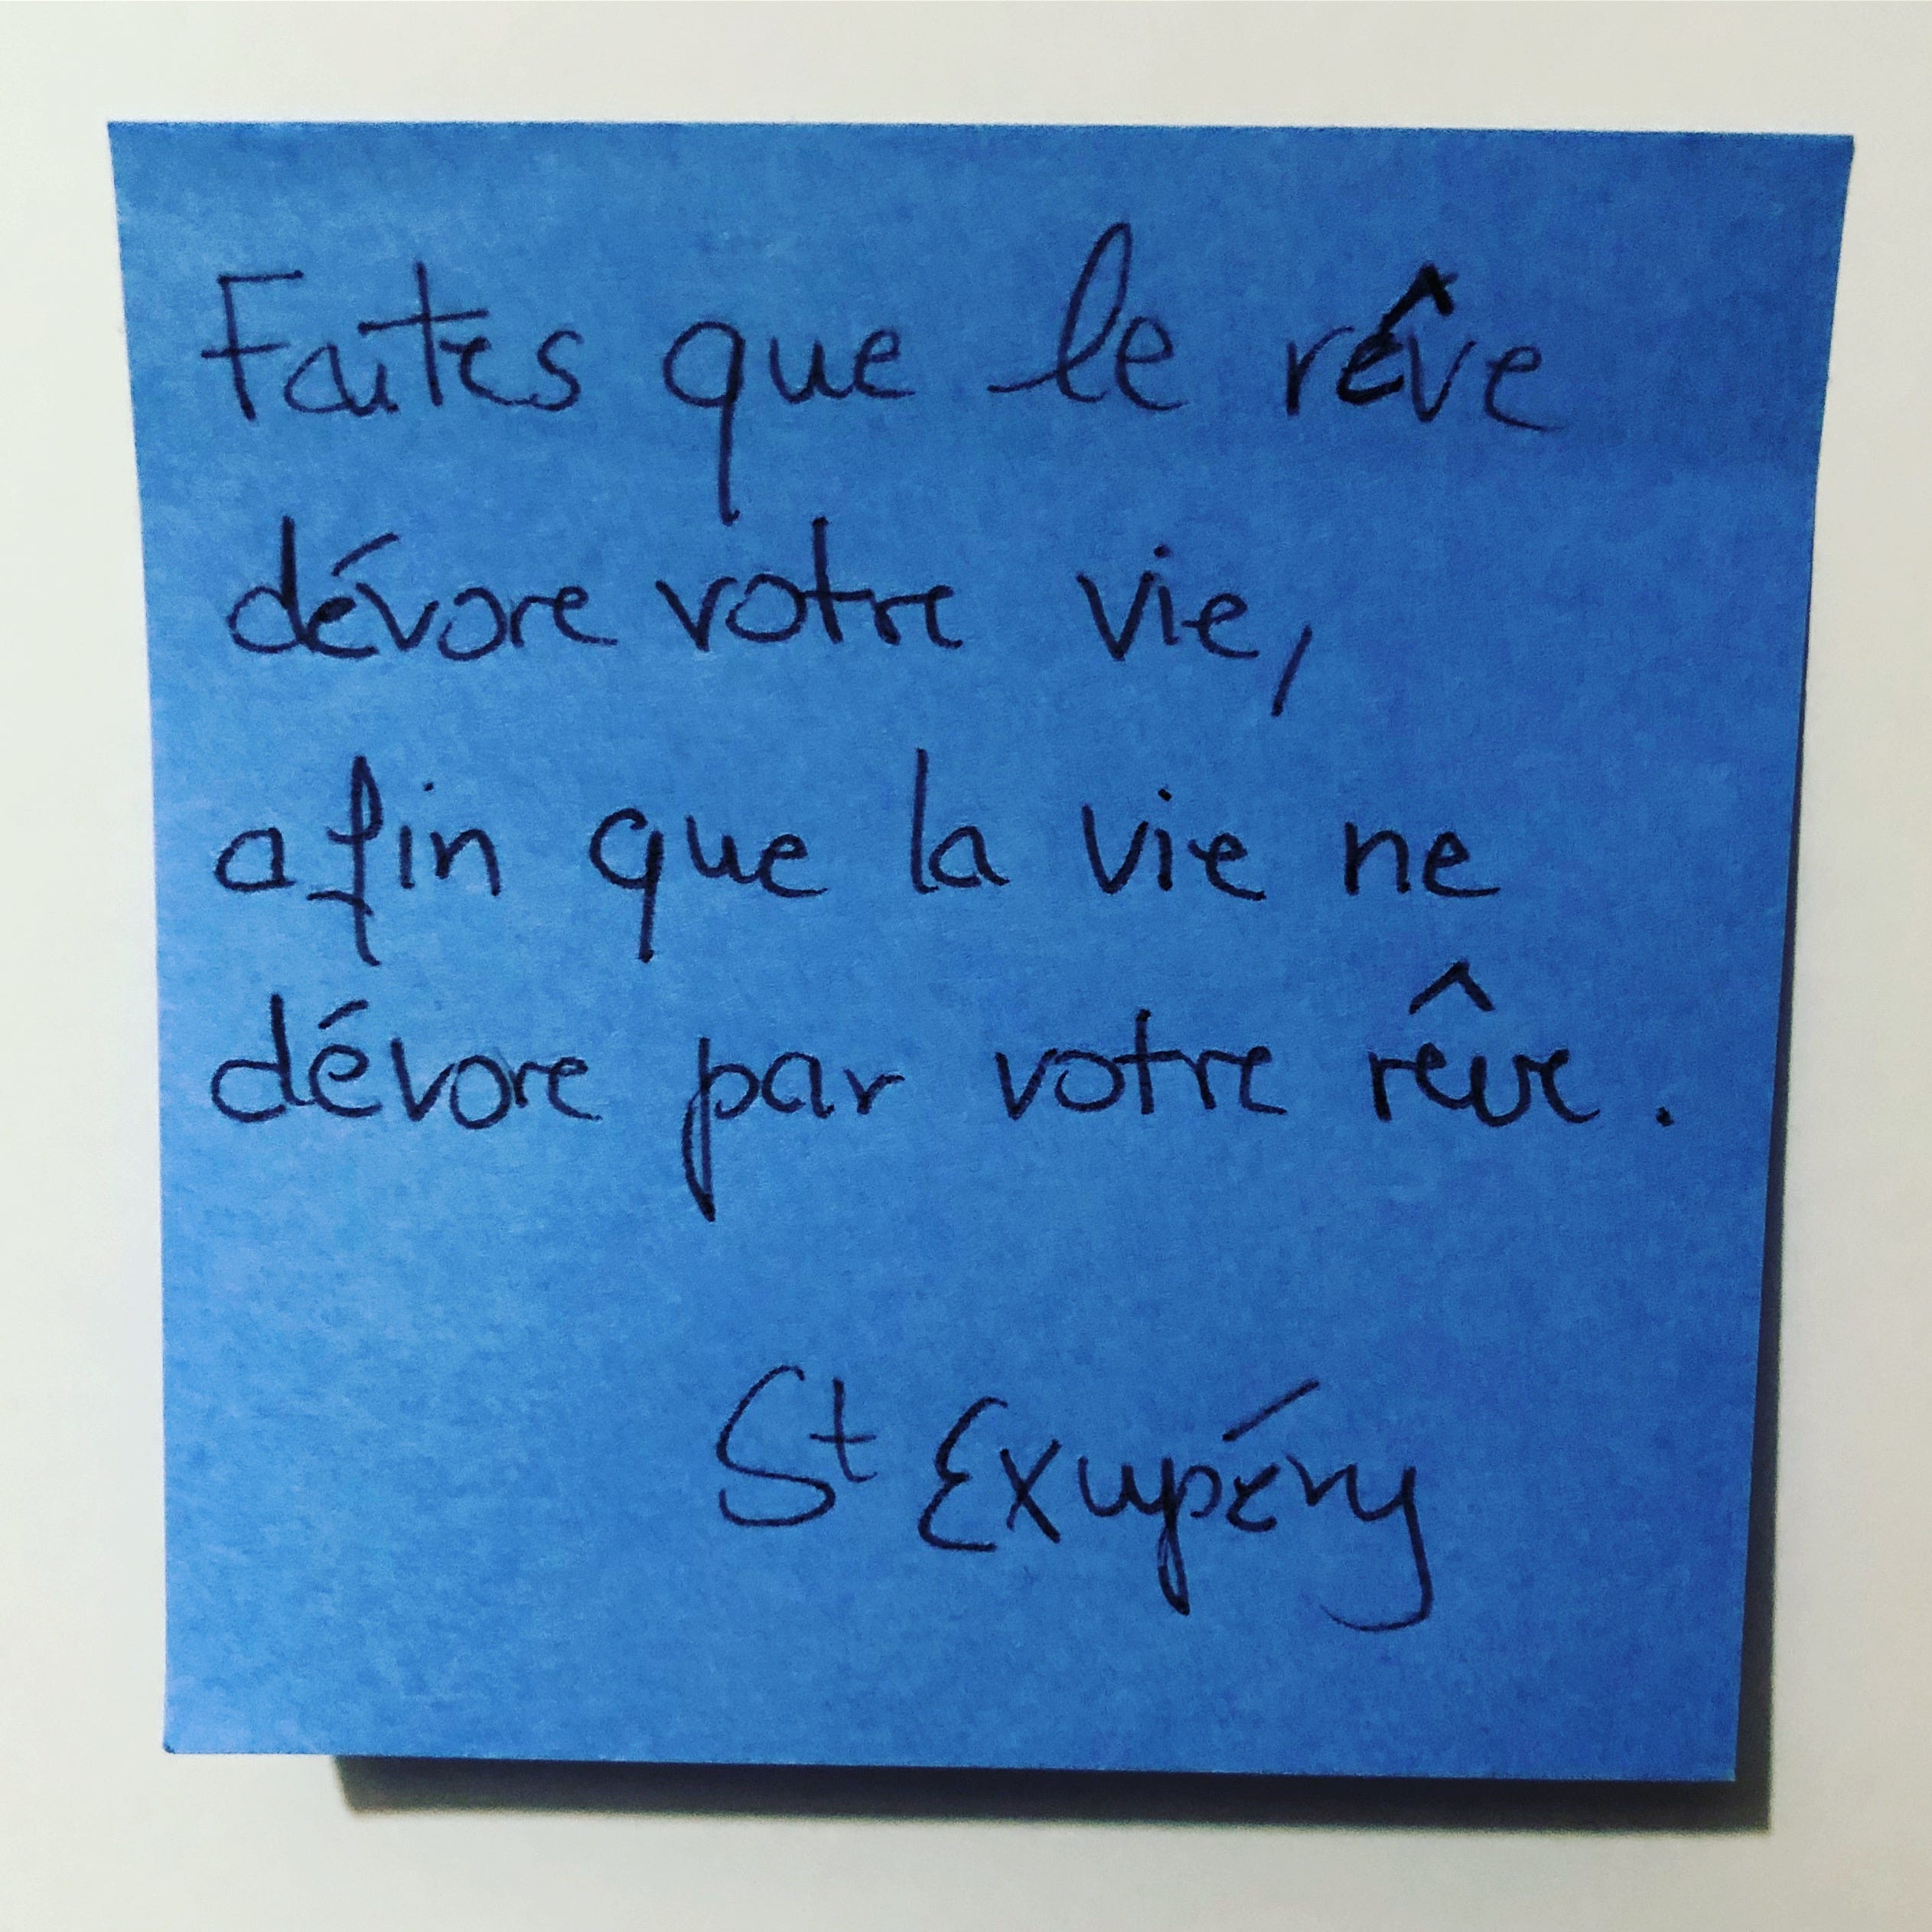 Faites que le rêve
dévore votre vie,
afin que la vie ne
dévore par votre rêve.
St Exupéry